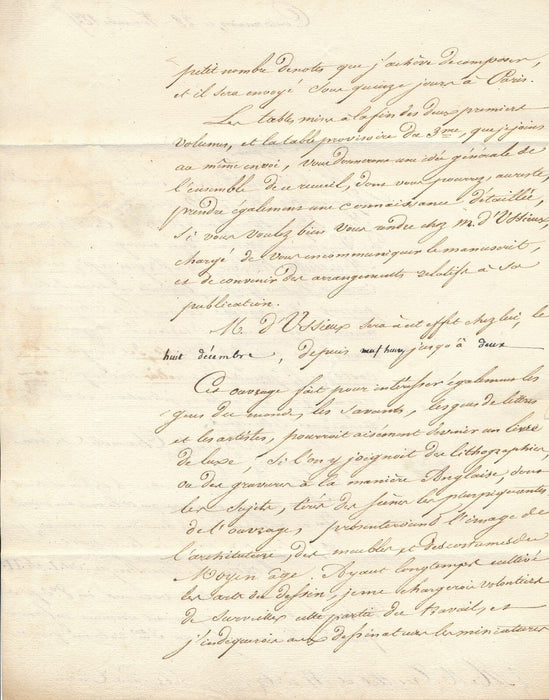 petit nombre de notes que j'achève de composer,
et il sera envoyé sous quinze jours à Paris.
Les tables mises à la fin des deux premiers
volumes, et la table provisoire du 3me, que je joins
au même envoi, vous donneront une idée générale de
l'ensemble de ce recueil, dont vous pourrez, au reste,
prendre également une connaissance détaillée,
si vous voulez bien vous rendre chez M. d'Ussieux,
chargé de vous en communiquer le manuscrit,
et de convenir des arrangements relatifs à sa
publication.
M. d'Ussieux sera à cet effet chez lui, le
huit décembre, depuis neuf heures jusqu'à deux
Cet ouvrage fait pour intéresser également les
gens du monde, les savants, les gens de lettres
et les artistes, pourrait aisément devenir un livre
de luxe, si l'on y joignait des lithographies,
ou des gravures à la manière Anglaise, dont
les sujets, tirés des scènes les plus piquantes
de l'ouvrage, présenteraient l'image de
l'architecture des meubles et des costumes du
Moyen âge. Ayant longtemps cultivé
les arts du dessin, je me chargerais volontiers
de surveiller cette partie du travail, et
j'indiquerais aux dessinateurs les miniatures